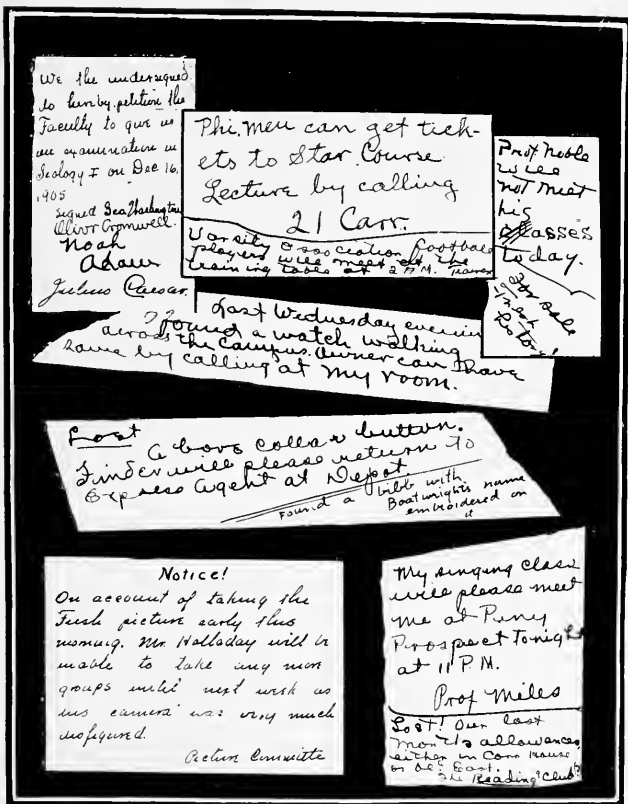 We the undersigned
to hereby petition the
Faculty to give us
an examination in
Geology I on Dec 16,
1905
signed Geo Washington
Oliver Cromwell.
Noah
Adam
Julius Caesar.
Phi. men can get tick-
ets to Star Course
Lecture by calling
21 Carr.
Varsity Association football
players will meet at the
training table at 2 P.M.
Prof Noble
will
not meet
his
classes
today.
For sale
Trash
History!
Last Wednesday evening
I found a watch walking
across the campus. Owner can have
same by calling at my room.
Lost
A boys collar button.
Finder will please return to
Express Agent at Depot
Found a bibb with
Boatwrights name
embroidered on
it
Notice!
On account of taking the
Fresh picture early this
morning. Mr. Holladay will be
unable to take any more
groups until next week as
his camera was very much
disfigured.
Picture Committee
My singing class
will please meet
me at Piney
Prospect Tonight
at 11 P.M.
Prof Miles
Lost! Our last
month's allowances,
either in Carr House
or Old East.
The "Reading Club"?